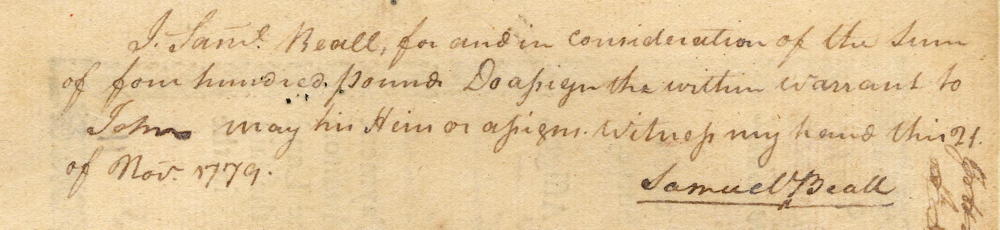 I. Saml. Beall, for and in Consideration of the Sum
of four hundred pound Do assign the within Warrant to
John may his Heirs or assigns. Witness my hand this 21.
of Nov. 1779.
Samuel Beall